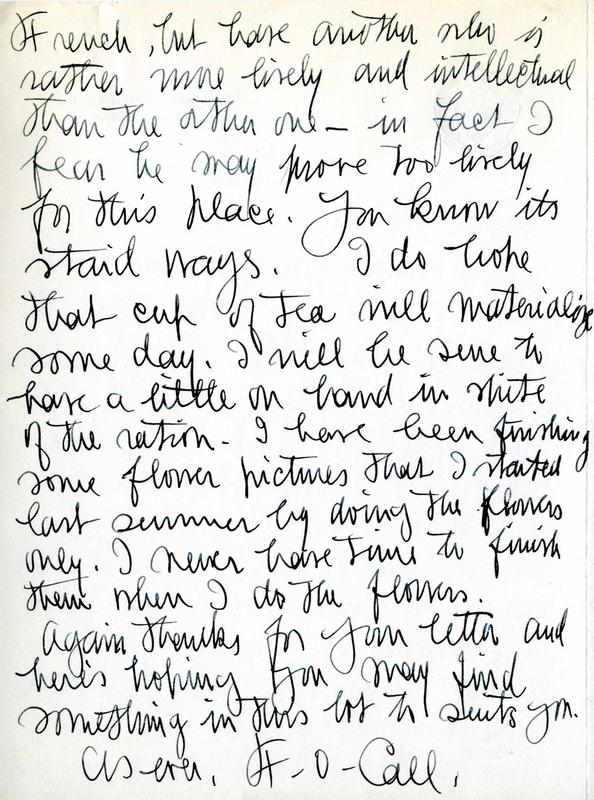 French, but have another who is
rather more lively and intellectual
than the other one – in fact I
fear he may prove too lively
for this place. You know its
staid ways. I do hope
that cup of tea will materialize
some day. I will be sure to
have a little on hand in spite
of the ration. I have been finishing
some flower pictures that I started
last summer by doing the flowers
only. I never have time to finish
them when I do the flowers.
Again thanks for your letter and
here's hoping you may find
something in this lot to suits you.
As ever, F-O-Call.